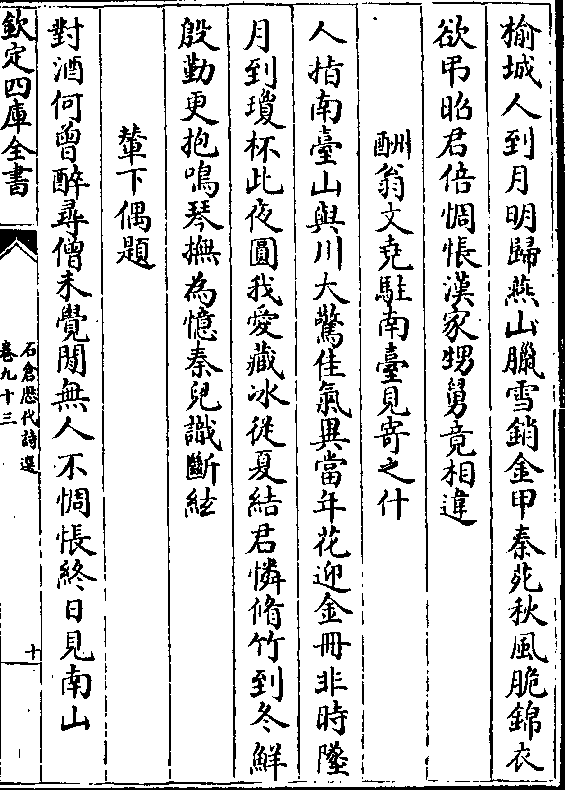 榆城人到月明歸燕山臘雪銷金甲秦苑秋風脆錦衣
欲弔昭君倍惆悵漢家甥舅竟相違
酬翁文堯駐南臺見寄之什
人指南臺山與川大驚佳氣異當年花迎金冊非時墜
月到瓊杯此夜圓我愛藏冰從夏結君憐脩竹到冬鮮
殷勤更抱鳴琴撫為憶秦兒識斷絃
輦下偶題
對酒何曾醉尋僧未覺閒無人不惆悵終日見南山
欽定四庫全書
石倉歷代詩選
卷九十三
十